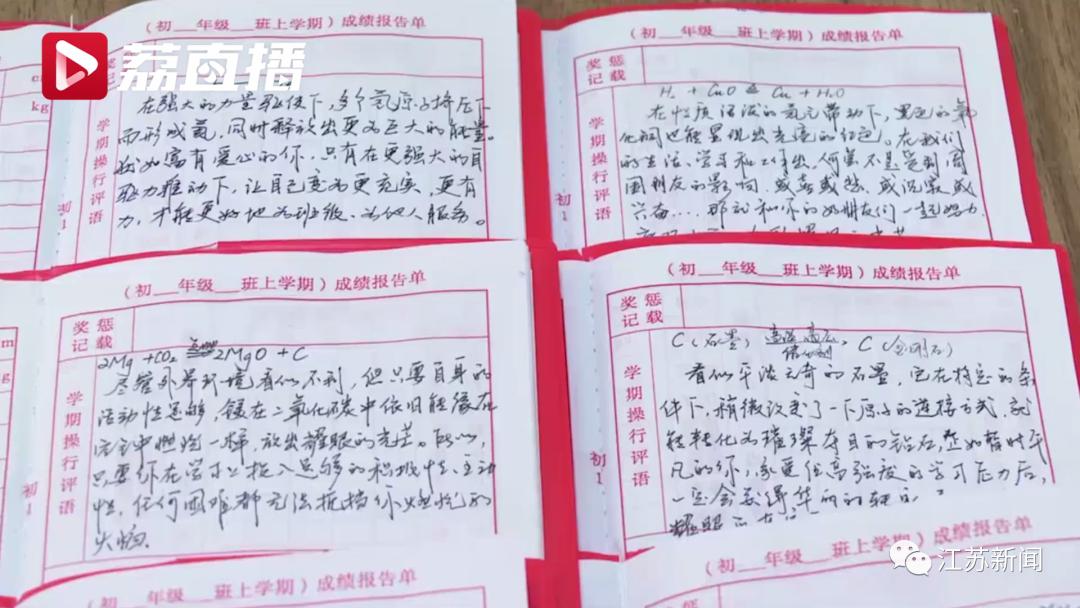 荔直播
（初___年级___班上学期）成绩报告单
奖惩记载
cm
kg
学期操行评语
初1
在强大的力量驱使下，多个氢原子挤压下
而形成氦，同时释放出更为巨大的能量。
犹如富有爱心的你，只有在更强大的自
驱力推动下，让自己变为更充实，更有
力，才能更好地为班级、为他人服务。
（初___年级___班上学期）成绩报告单
奖惩记载
学期操行评语
初1
H₂ + CuO ≜ Cu + H₂O
在性质活泼的氢元带动下，黑色的氧
化铜也能呈现出光亮的红色。在我们
的生活、学习和工作出，何尝不是受到周
围朋友的影响，或喜或愁，或沉寂或
兴奋……那就和你的好朋友们一起努力
（初___年级___班上学期）成绩报告单
奖惩记载
m
g
学期操行评语
初1
2Mg + CO₂ 点燃 2MgO + C
尽管外界环境看似不利，但只要自身的
活动性足够，镁在二氧化碳中依旧能像在
空气中燃烧一样，放出耀眼的光芒。所以，
只要你在学习上投入足够的积极性、主动
性，任何困难都无法抵挡你燃烧的
火焰。
（初___年级___班上学期）成绩报告单
奖惩记载
学期操行评语
初1
C（石墨） 高温 高压 催化剂 C（金刚石）
看似平淡无奇的石墨，它在特定的条
件下，稍微改变了一下原子的连接方式，就
能转化为璀璨夺目的钻石，正如暂时平
凡的你，承受住高强度的学习压力后，
一定会变得华丽的
耀眼
（初___年级___班上学期）成绩报告单
（初___年级___班上学期）成绩报告单
江苏新闻